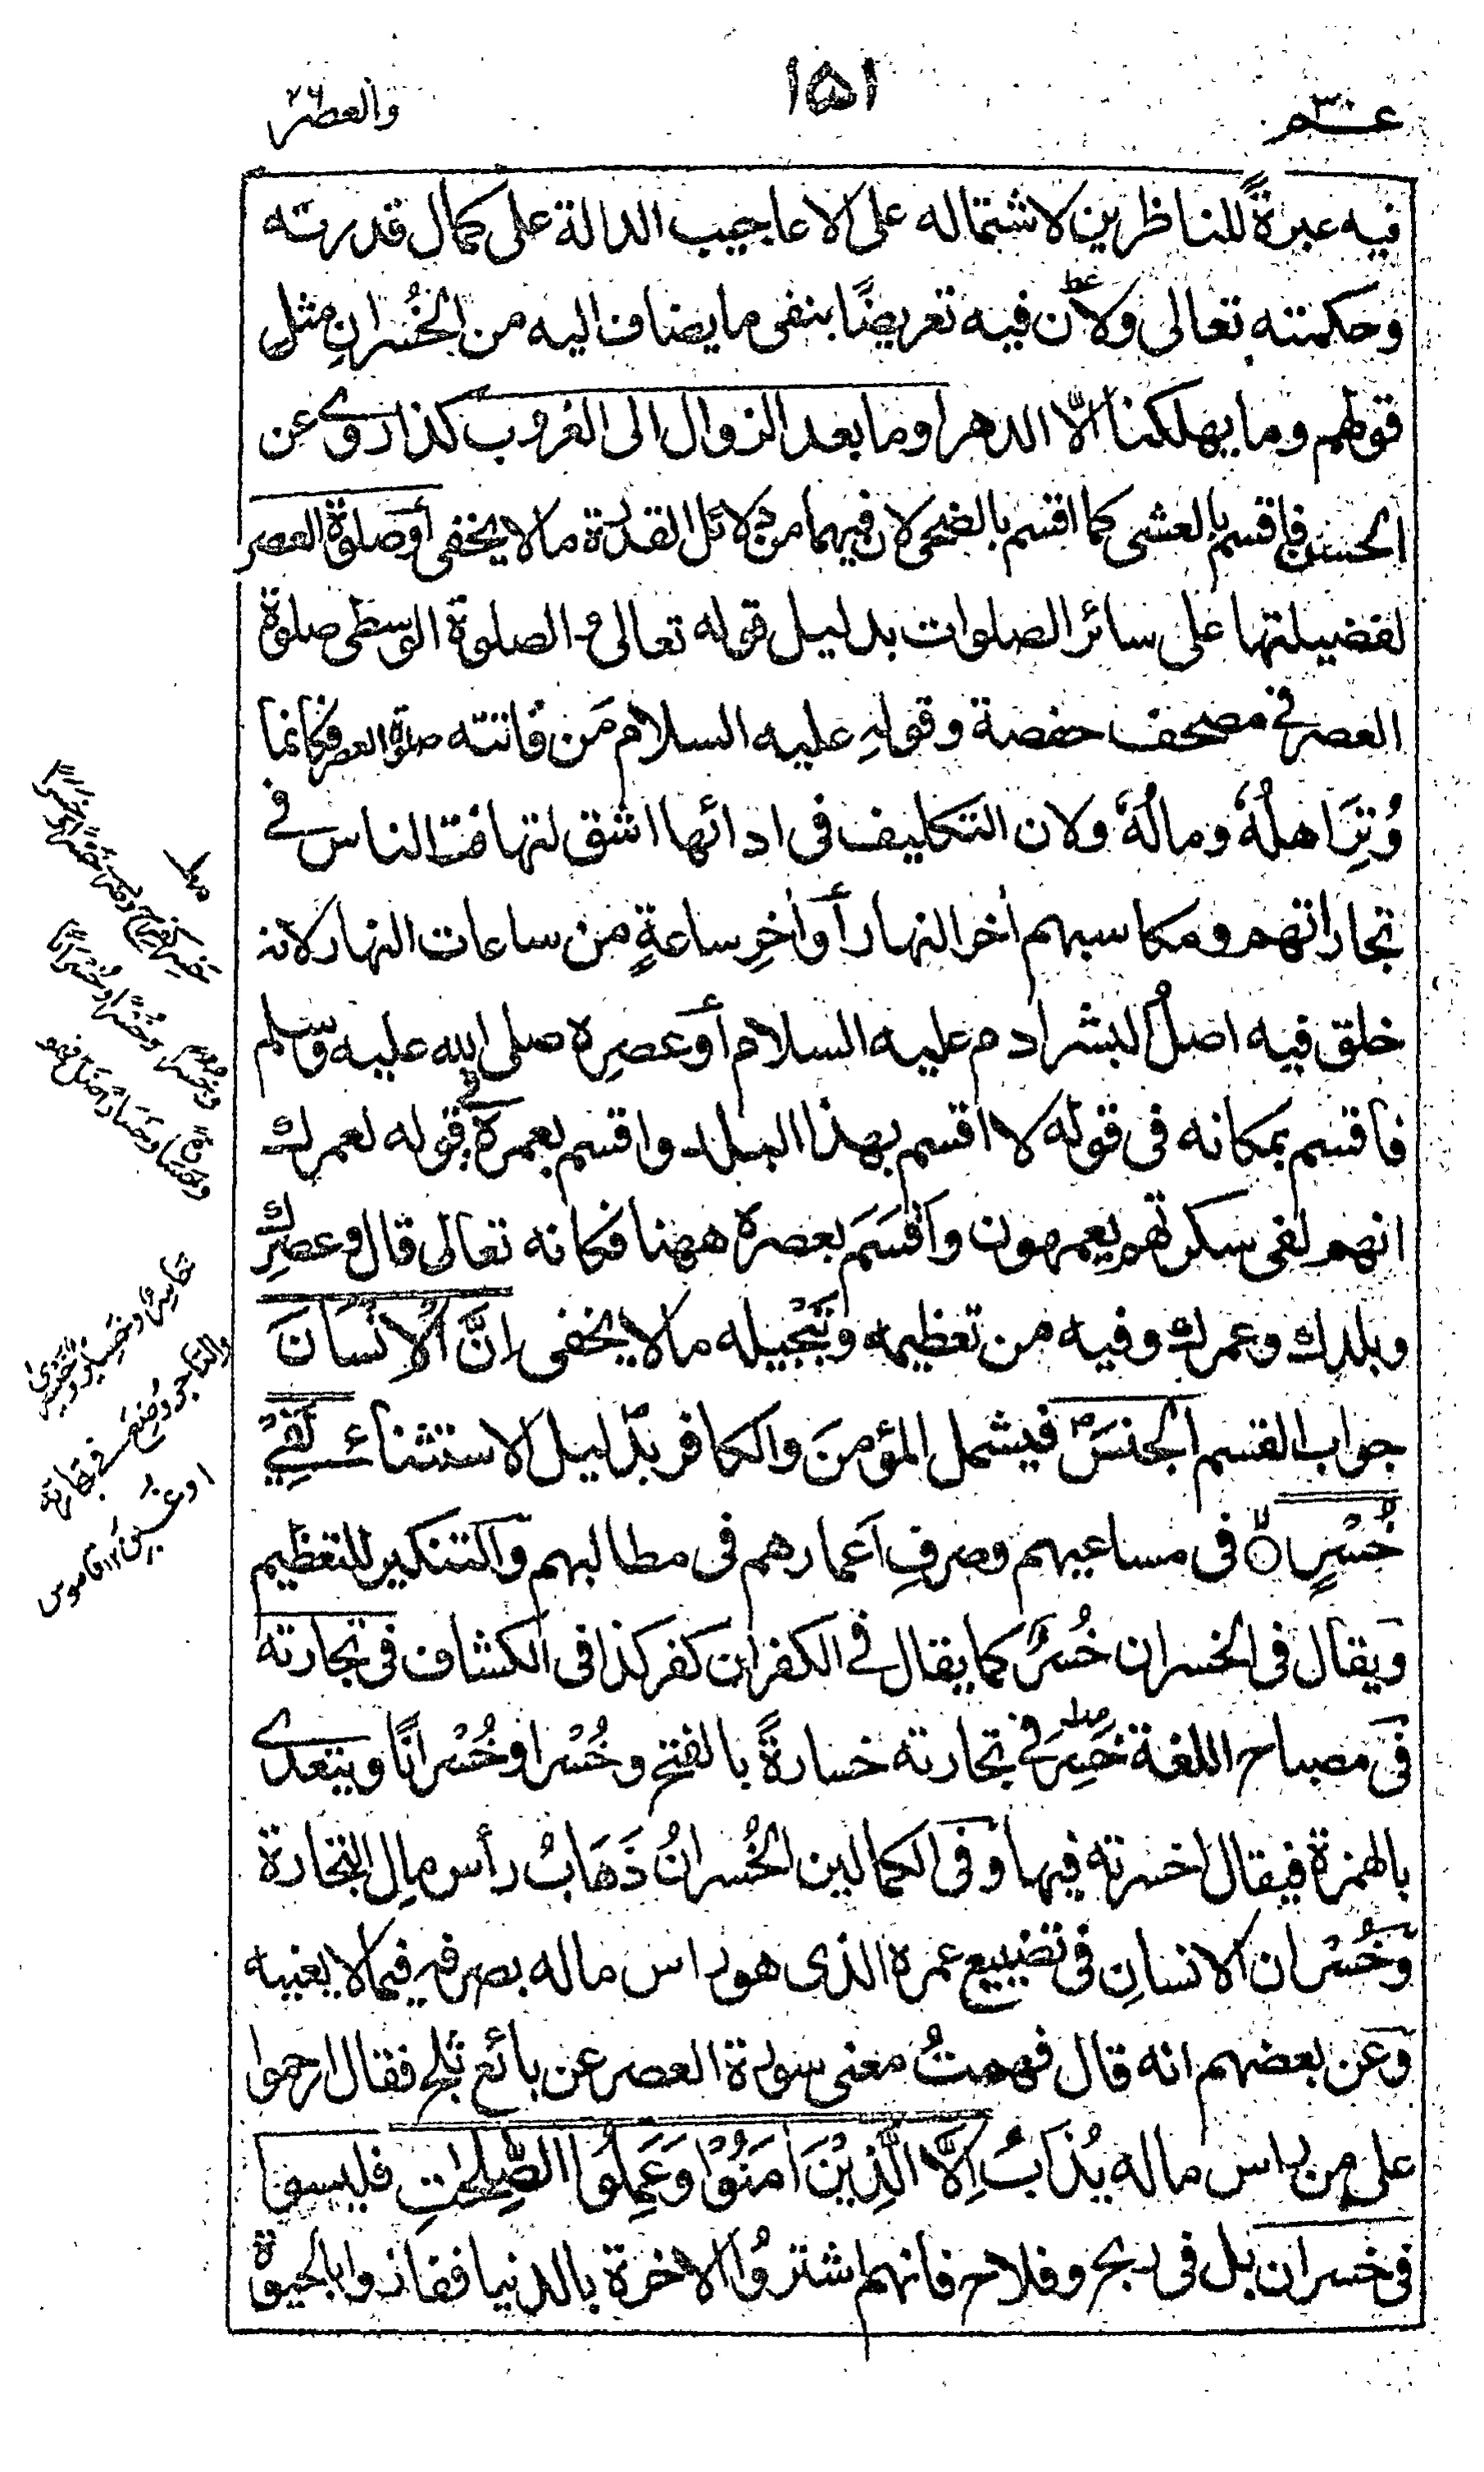 عم ٣٠
١٥١
والعصر
فيه عبرةً للناظرين لاشتماله على الاعاجيب الدالة على كمال قدرته
وحكمته تعالى ولان فيه تعريضًا بنفى ما يضاف اليه من الخُسرانِ مثلِ
قولهم وما يهلكنا الّا الدهر او ما بعد الزوال الى الغروب كذا روى عن
الحسن فاقسم بالعشى كما اقسم بالضحى لان فيهما من دلائل القدرة ما لا يخفى أو صلوة العصر
لفضيلتها على سائر الصلوات بدليل قوله تعالى و الصلوة الوسطى صلوة
العصر في مصحف حفصة وقولهِ عليه السلام مَن فاتته صلوة العصر فكانما
وُتِرَ اهلُهٗ ومالُهٗ ولان التكليف فى ادائها اشق لتهافت الناس فى
تجاراتهم ومكاسبهم اخر النهار أو اٰخرِ ساعةٍ من ساعات النهار لانه
خلق فيه اصلُ البشر ادم عليه السلام أو عصرِه صلى الله عليه وسلم
فاقسم بمكانه فى قوله لا اقسم بهذا البلد واقسم بعمره في قوله لعمرك
انهم لفى سكرتهم يعمهون واَقسَمَ بعصره ههنا فكانه تعالى قال وعصرِك
وبلدك وعمرك وفيه من تعظيمه وتَبْجيله ما لا يخفى اِنَّ الْاِنْسَانَ
جواب القسم الجنسَ فيشمل المؤمنَ والكافر بدليل الاستثناء لَفِيْ
خُسْرٍ فى مساعيهم وصرفِ اَعمارهم فى مطالبهم والتنكير للتعظيم
ويقال فى الخسران خُسْرٌ كما يقال في الكفران كفر كذا فى الكشاف فى تجارته
فى مصباح اللغة خَسِرَ في تجارته خسارةً بالفتح وخُسْرا وخُسْرانًا ويتعدى
بالهمزة فيقال اخسرته فيها وفى الكمالين الخُسرانُ ذَهَابُ رأس مالِ التجارة
وخُسْران الانسانِ فى تضييع عمره الذى هو راس ماله بصرفه فيما لا يغنيه
وعن بعضهم انه قال فهمتُ معنى سورة العصر عن بائع ثلج فقال ارحموا
على من راس ماله يُذَابُ اِلَّا الَّذِيْنَ اٰمَنُوْا وَعَمِلُوا الصّٰلِحٰتِ فليسوا
فى خسران بل فى ربح وفلاح فانهم اشتروُا الاخرة بالدنيا ففازوا بالحيوة